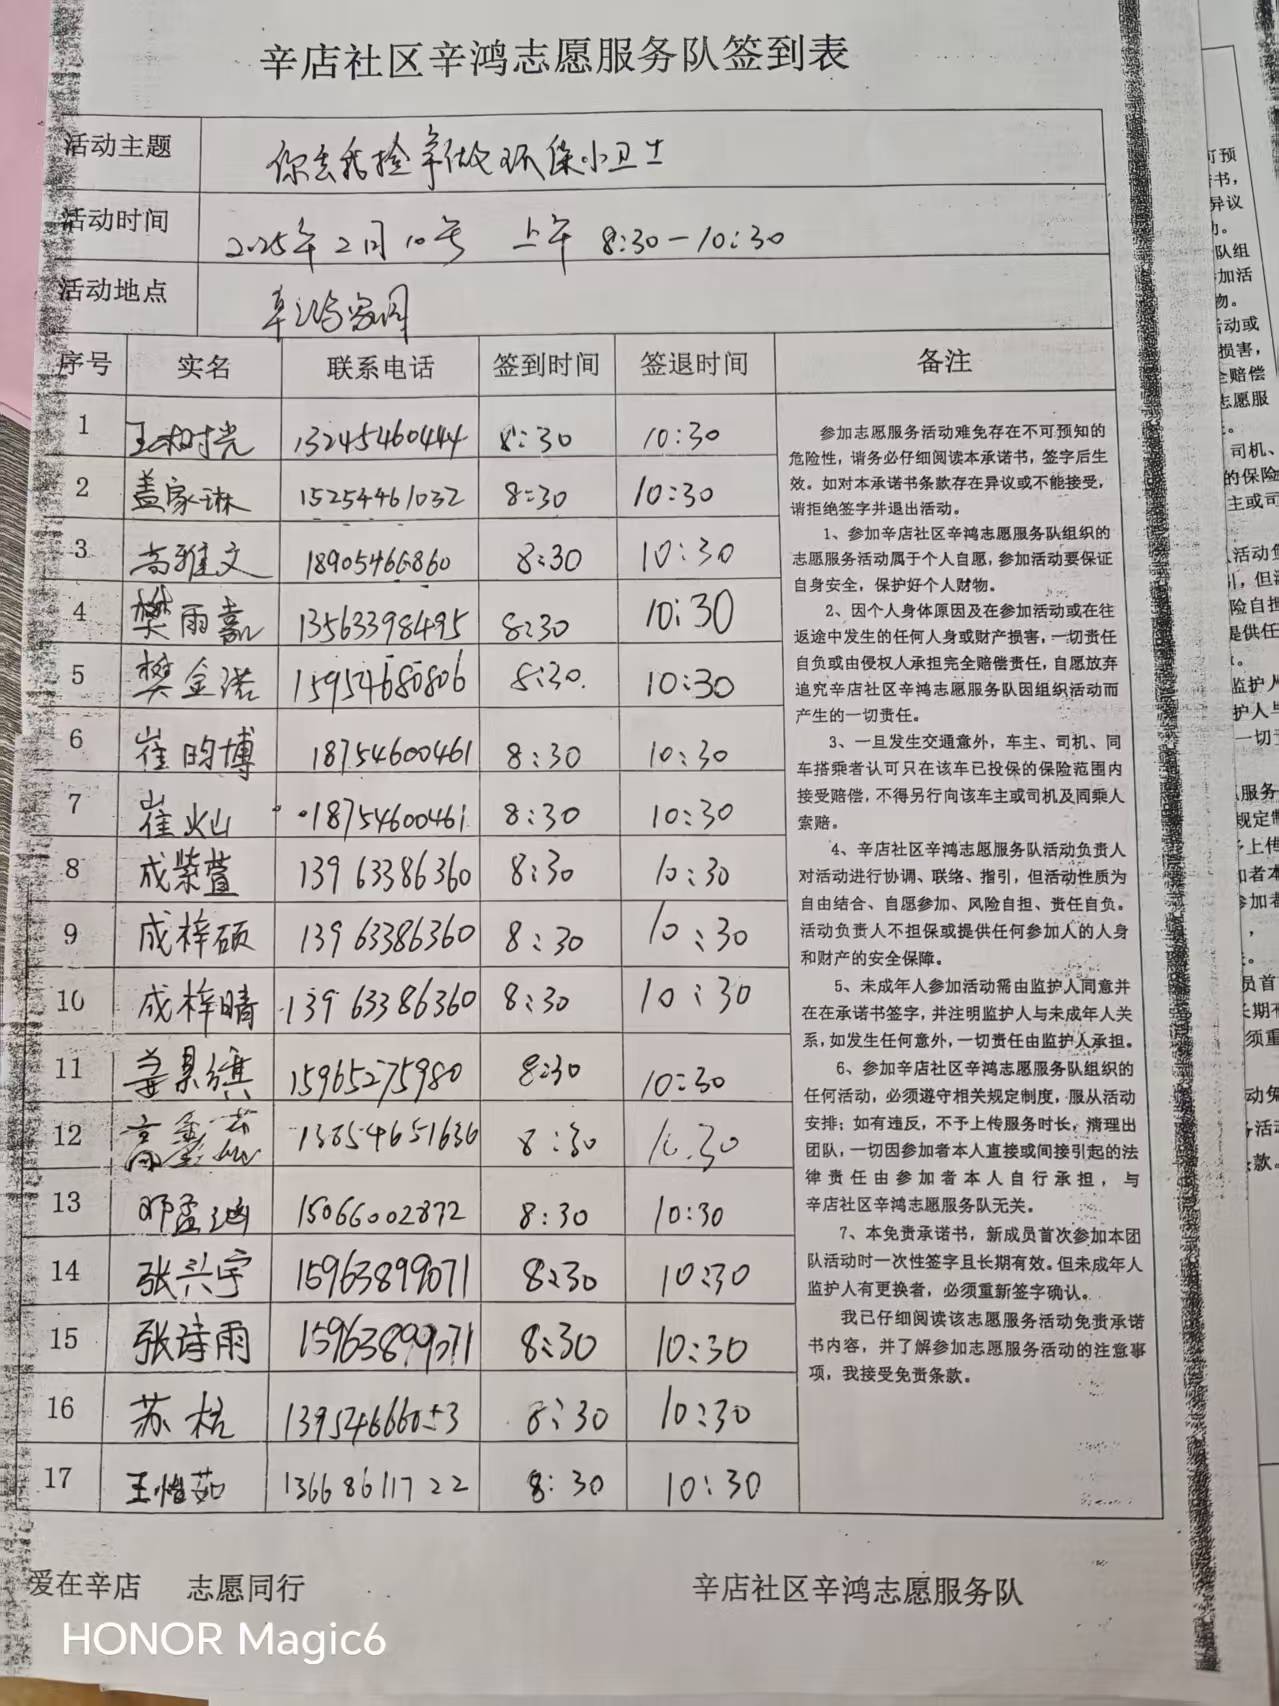 辛店社区辛鸿志愿服务队签到表
活动主题
小卫士
活动时间 2025年2月10号 上午 8:30-10:30
活动地点 辛鸿家园
序号 实名 联系电话 签到时间 签退时间 备注
1 13245460444 8:30 10:30
2 盖家琳 15254461032 8:30 10:30
3 尚雅文 18905466860 8:30 10:30
4 樊雨嘉 13563398495 8:30 10:30
5 樊金诺 15954680806 8:30. 10:30
6 崔昀博 18754600461 8:30 10:30
7 崔 18754600461 8:30 10:30
8 成紫萱 13963386360 8:30 10:30
9 成梓硕 13963386360 8:30 10:30
10 成梓晴 13963386360 8:30 10:30
11 姜果旗 15965275980 8:30 10:30
12 高鑫 13854651636 8:30 10:30
13 邓孟 15066002872 8:30 10:30
14 张兴宇 15963899071 8:30 10:30
15 张诗雨 15963899071 8:30 10:30
16 苏杭 8:30 10:30
17 王惜茹 13668611722 8:30 10:30
参加志愿服务活动难免存在不可预知的
危险性，请务必仔细阅读本承诺书，签字后生
效。如对本承诺书条款存在异议或不能接受，
请拒绝签字并退出活动。
1、参加辛店社区辛鸿志愿服务队组织的
志愿服务活动属于个人自愿，参加活动要保证
自身安全，保护好个人财物。
2、因个人身体原因及在参加活动或在往
返途中发生的任何人身或财产损害，一切责任
自负或由侵权人承担完全赔偿责任，自愿放弃
追究辛店社区辛鸿志愿服务队因组织活动而
产生的一切责任。
3、一旦发生交通意外，车主、司机、同
车搭乘者认可只在该车已投保的保险范围内
接受赔偿，不得另行向该车主或司机及同乘人
索赔。
4、辛店社区辛鸿志愿服务队活动负责人
对活动进行协调、联络、指引，但活动性质为
自由结合、自愿参加、风险自担、责任自负。
活动负责人不担保或提供任何参加人的人身
和财产的安全保障。
5、未成年人参加活动需由监护人同意并
在在承诺书签字，并注明监护人与未成年人关
系，如发生任何意外，一切责任由监护人承担。
6、参加辛店社区辛鸿志愿服务队组织的
任何活动，必须遵守相关规定制度，服从活动
安排；如有违反，不予上传服务时长，清理出
团队，一切因参加者本人直接或间接引起的法
律责任由参加者本人自行承担，与
辛店社区辛鸿志愿服务队无关。
7、本免责承诺书，新成员首次参加本团
队活动时一次性签字且长期有效。但未成年人
监护人有更换者，必须重新签字确认。
我已仔细阅读该志愿服务活动免责承诺
书内容，并了解参加志愿服务活动的注意事
项，我接受免责条款。
爱在辛店 志愿同行 辛店社区辛鸿志愿服务队
HONOR Magic6